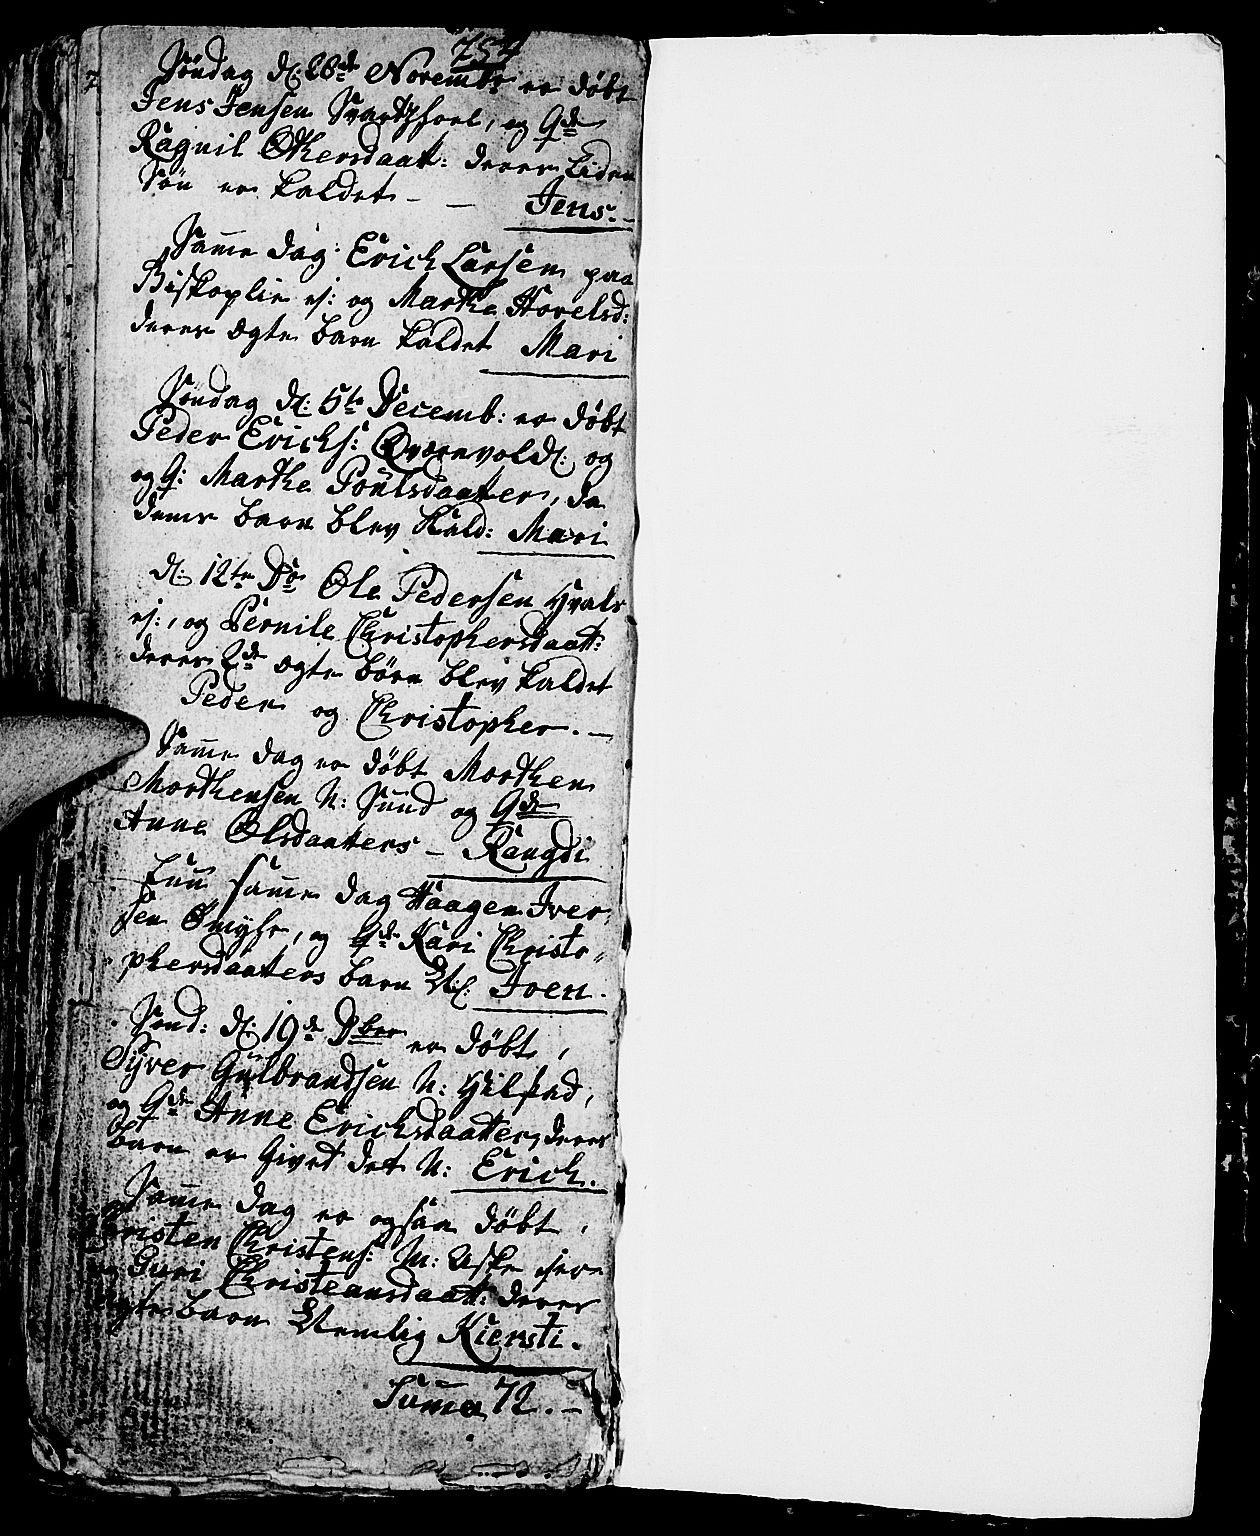 754
Søndag d: 28de Novembr er døbt
Jens Jensen Svartzhoel, og Qde
Ragnil Othersdaatt: deres Liden
Søn er kaldet – – Jens. –
Samme dag: Erich Larsen paa
Biskoplie ej: og Marthe Hovelsd:
deres ægte barn kaldet Mari
Søndag d: 5te Decemb: er døbt
Peder Erichs: Qværnvold: og
og Q: Marthe Poulsdaatter, da
deres barn blev kald: Mari
d: 12te Do Ole Pedersen Hvals
ej:, og Pernile Christophersdaatt:
deres 2de ægte børn blev kaldet
Peder og Christopher. –
Samme dag er døbt Morthen
Morthensen N: Sund og Qde
Anne Olsdaatters – Rangdi
samme dag Haagen Iver-
sen Ømyhr, og Qde Kari Christo-
phersdaatters barn N: Iven.
Sønd: d: 19de Xber er døbt,
Syver Gulbrandsen N:
og Qde Anne Erichsdaatter, deres
barn er givet det N: Erich.
Samme dag er ogsaa døbt,
Christen Christens: N: Aske
og Guri Christensdaatt: deres
ægte barn Nemlig Kiersti.
Summa 72. –